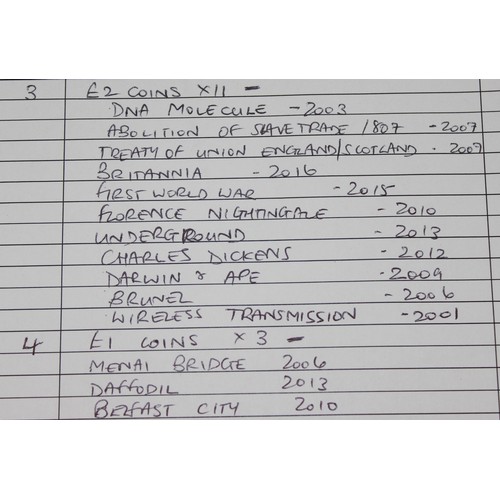 3 £2 COINS X11 -
DNA MOLECULE - 2003
ABOLITION OF SLAVE TRADE 1807 - 2007
TREATY OF UNION ENGLAND/SCOTLAND - 2007
BRITANNIA - 2016
FIRST WORLD WAR - 2015
FLORENCE NIGHTINGALE - 2010
UNDERGROUND - 2013
CHARLES DICKENS - 2012
DARWIN & APE - 2009
BRUNEL - 2006
WIRELESS TRANSMISSION - 2001
4 £1 COINS X 3 -
MENAI BRIDGE 2006
DAFFODIL 2013
BELFAST CITY 2010